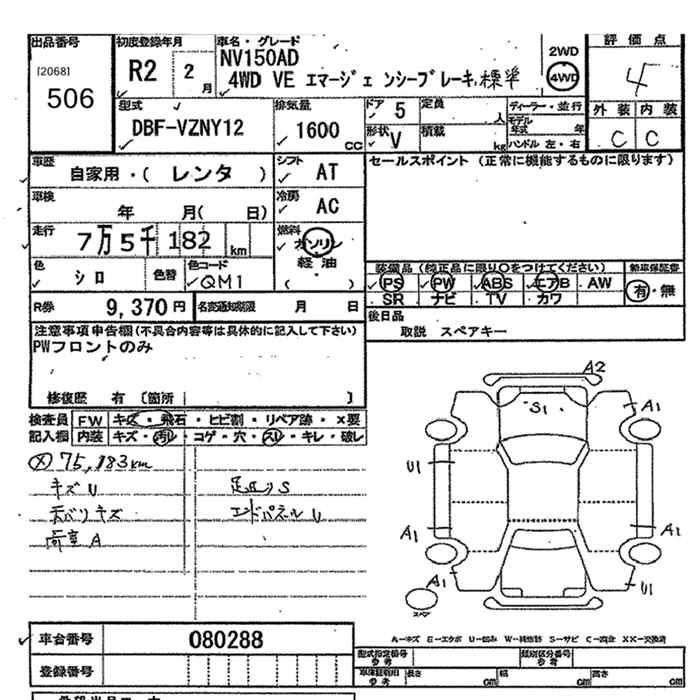 出品番号
[2068]
506
初度登録年月
R2 2 月
車名・グレード
NV150AD
4WD VE エマージェンシーブレーキ 標準
2WD
4WD
評価点
4
型式
DBF-VZNY12
排気量
1600 cc
ドア 5
定員 人
形状 V
積載 kg
ディーラー・並行
モデル年式 年
ハンドル 左・右
外装 内装
C C
車歴
自家用・( レンタ )
シフト
AT
セールスポイント (正常に機能するものに限ります)
車検
年 月( 日)
冷房
AC
走行
7万5千182 km
燃料
ガソリン
軽油
( )
色
シロ
色替
色コード
QM1
装備品 (純正品に限り○をつけてください)
新車保証書
PS PW ABS エアB AW
有・無
SR ナビ TV カワ
R券 9,370円
名変通知期限 月 日
後日品
取説 スペアキー
注意事項申告欄(不具合内容等は具体的に記入して下さい)
PWフロントのみ
修復歴 有 〔箇所 〕
検査員 FW キズ・飛石・ヒビ割・リペア跡・X要
記入欄 内装 キズ・汚レ・コゲ・穴・スレ・キレ・破レ
メ 75,183km
キズ U
足回り S
天バリキズ
エンドパネル U
荷室 A
A2
S1
A1
U1
A1
A1
A1
U1
スペア
A-キズ E-エクボ U-凹み W-補修跡 S-サビ C-腐食 XX-交換済
車台番号 080288
登録番号
型式指定番号
参考
類別区分番号
参考
車体証明用
参考
長さ cm
幅 cm
高さ cm